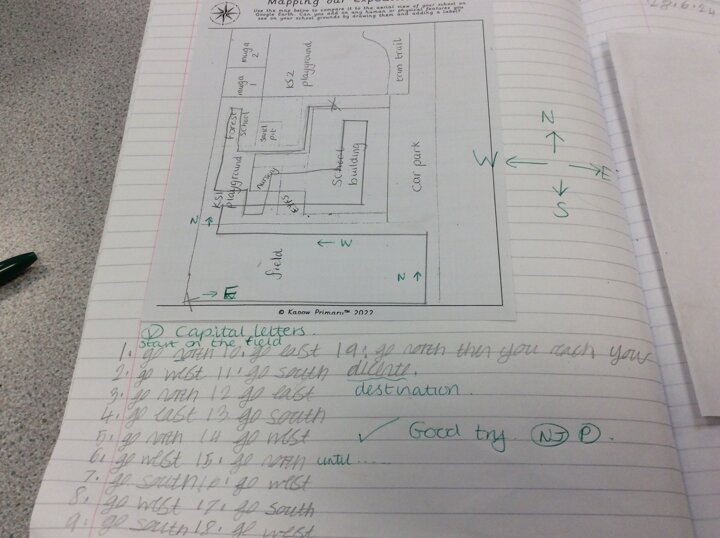 Mapping our Expedi
Use the map below to compare it to the aerial view of your school on
Google Earth. Can you add on any human or physical features you
see on your school grounds by drawing them and adding a label?
28.6.24
muga 2
muga 1
KS2 playground
trim trail
Forest school
Sand pit
KS1 playground
nursery
EYFS
School building
Car park
field
N
W
E
N
N
W
E
S
© Kapow Primary™ 2022
Capital letters.
start on the field
1. go north 10. go east 19. go north then you reach your
2. go west 11. go south
destination.
3. go north 12 go east
4. go east 13. go south
5. go north 14 go west
✓ Good try. NJ P.
6. go west 15. go north until.....
7. go south 16. go west
8. go west 17. go south
9. go south 18. go west